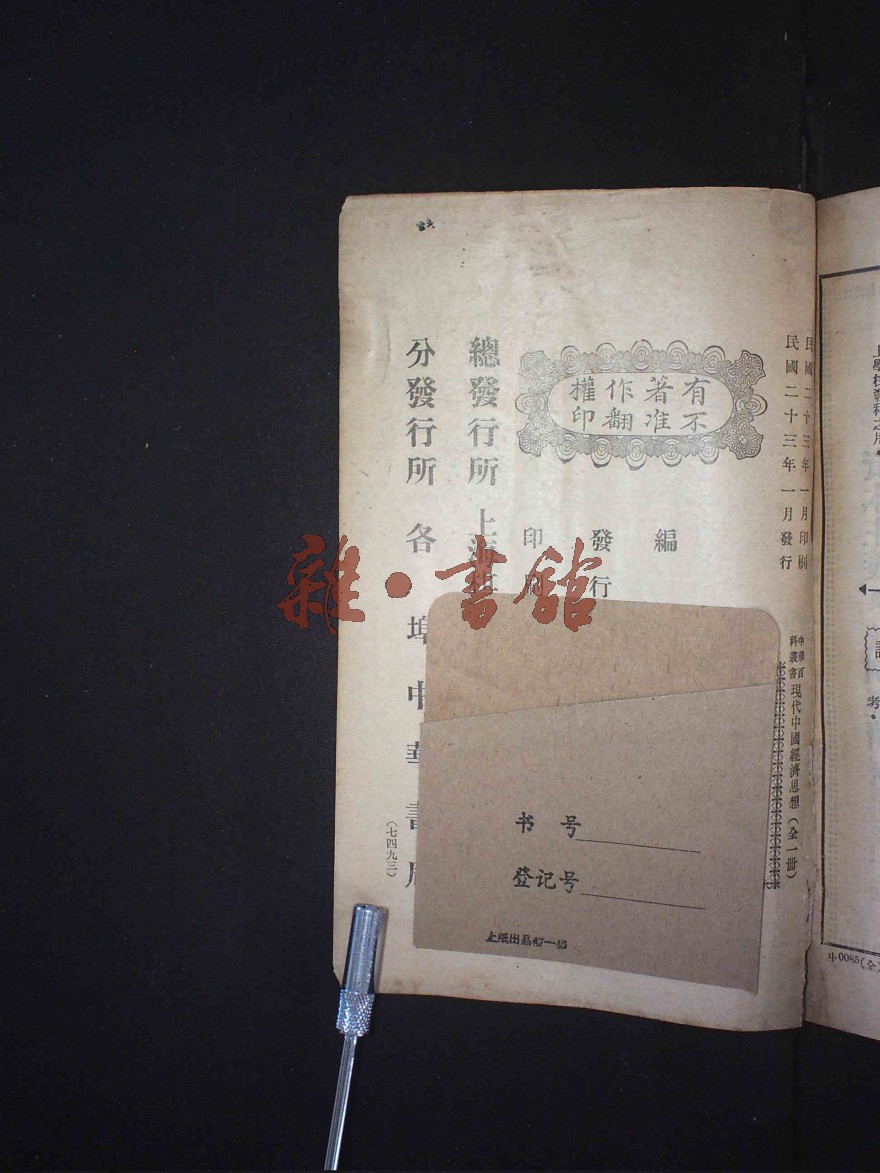 民國二十三年一月印刷
民國二十三年一月發行
中華百科叢書 現代中國經濟思想(全一冊)
有著作權
不准翻印
編
發行
印刷
總發行所 上海
分發行所 各埠中華書局
(七四九三)
书 号
登记号
上紙出品
雜·書館
考。
0085(全)